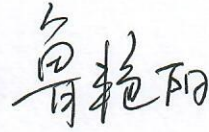 鲁艳阳